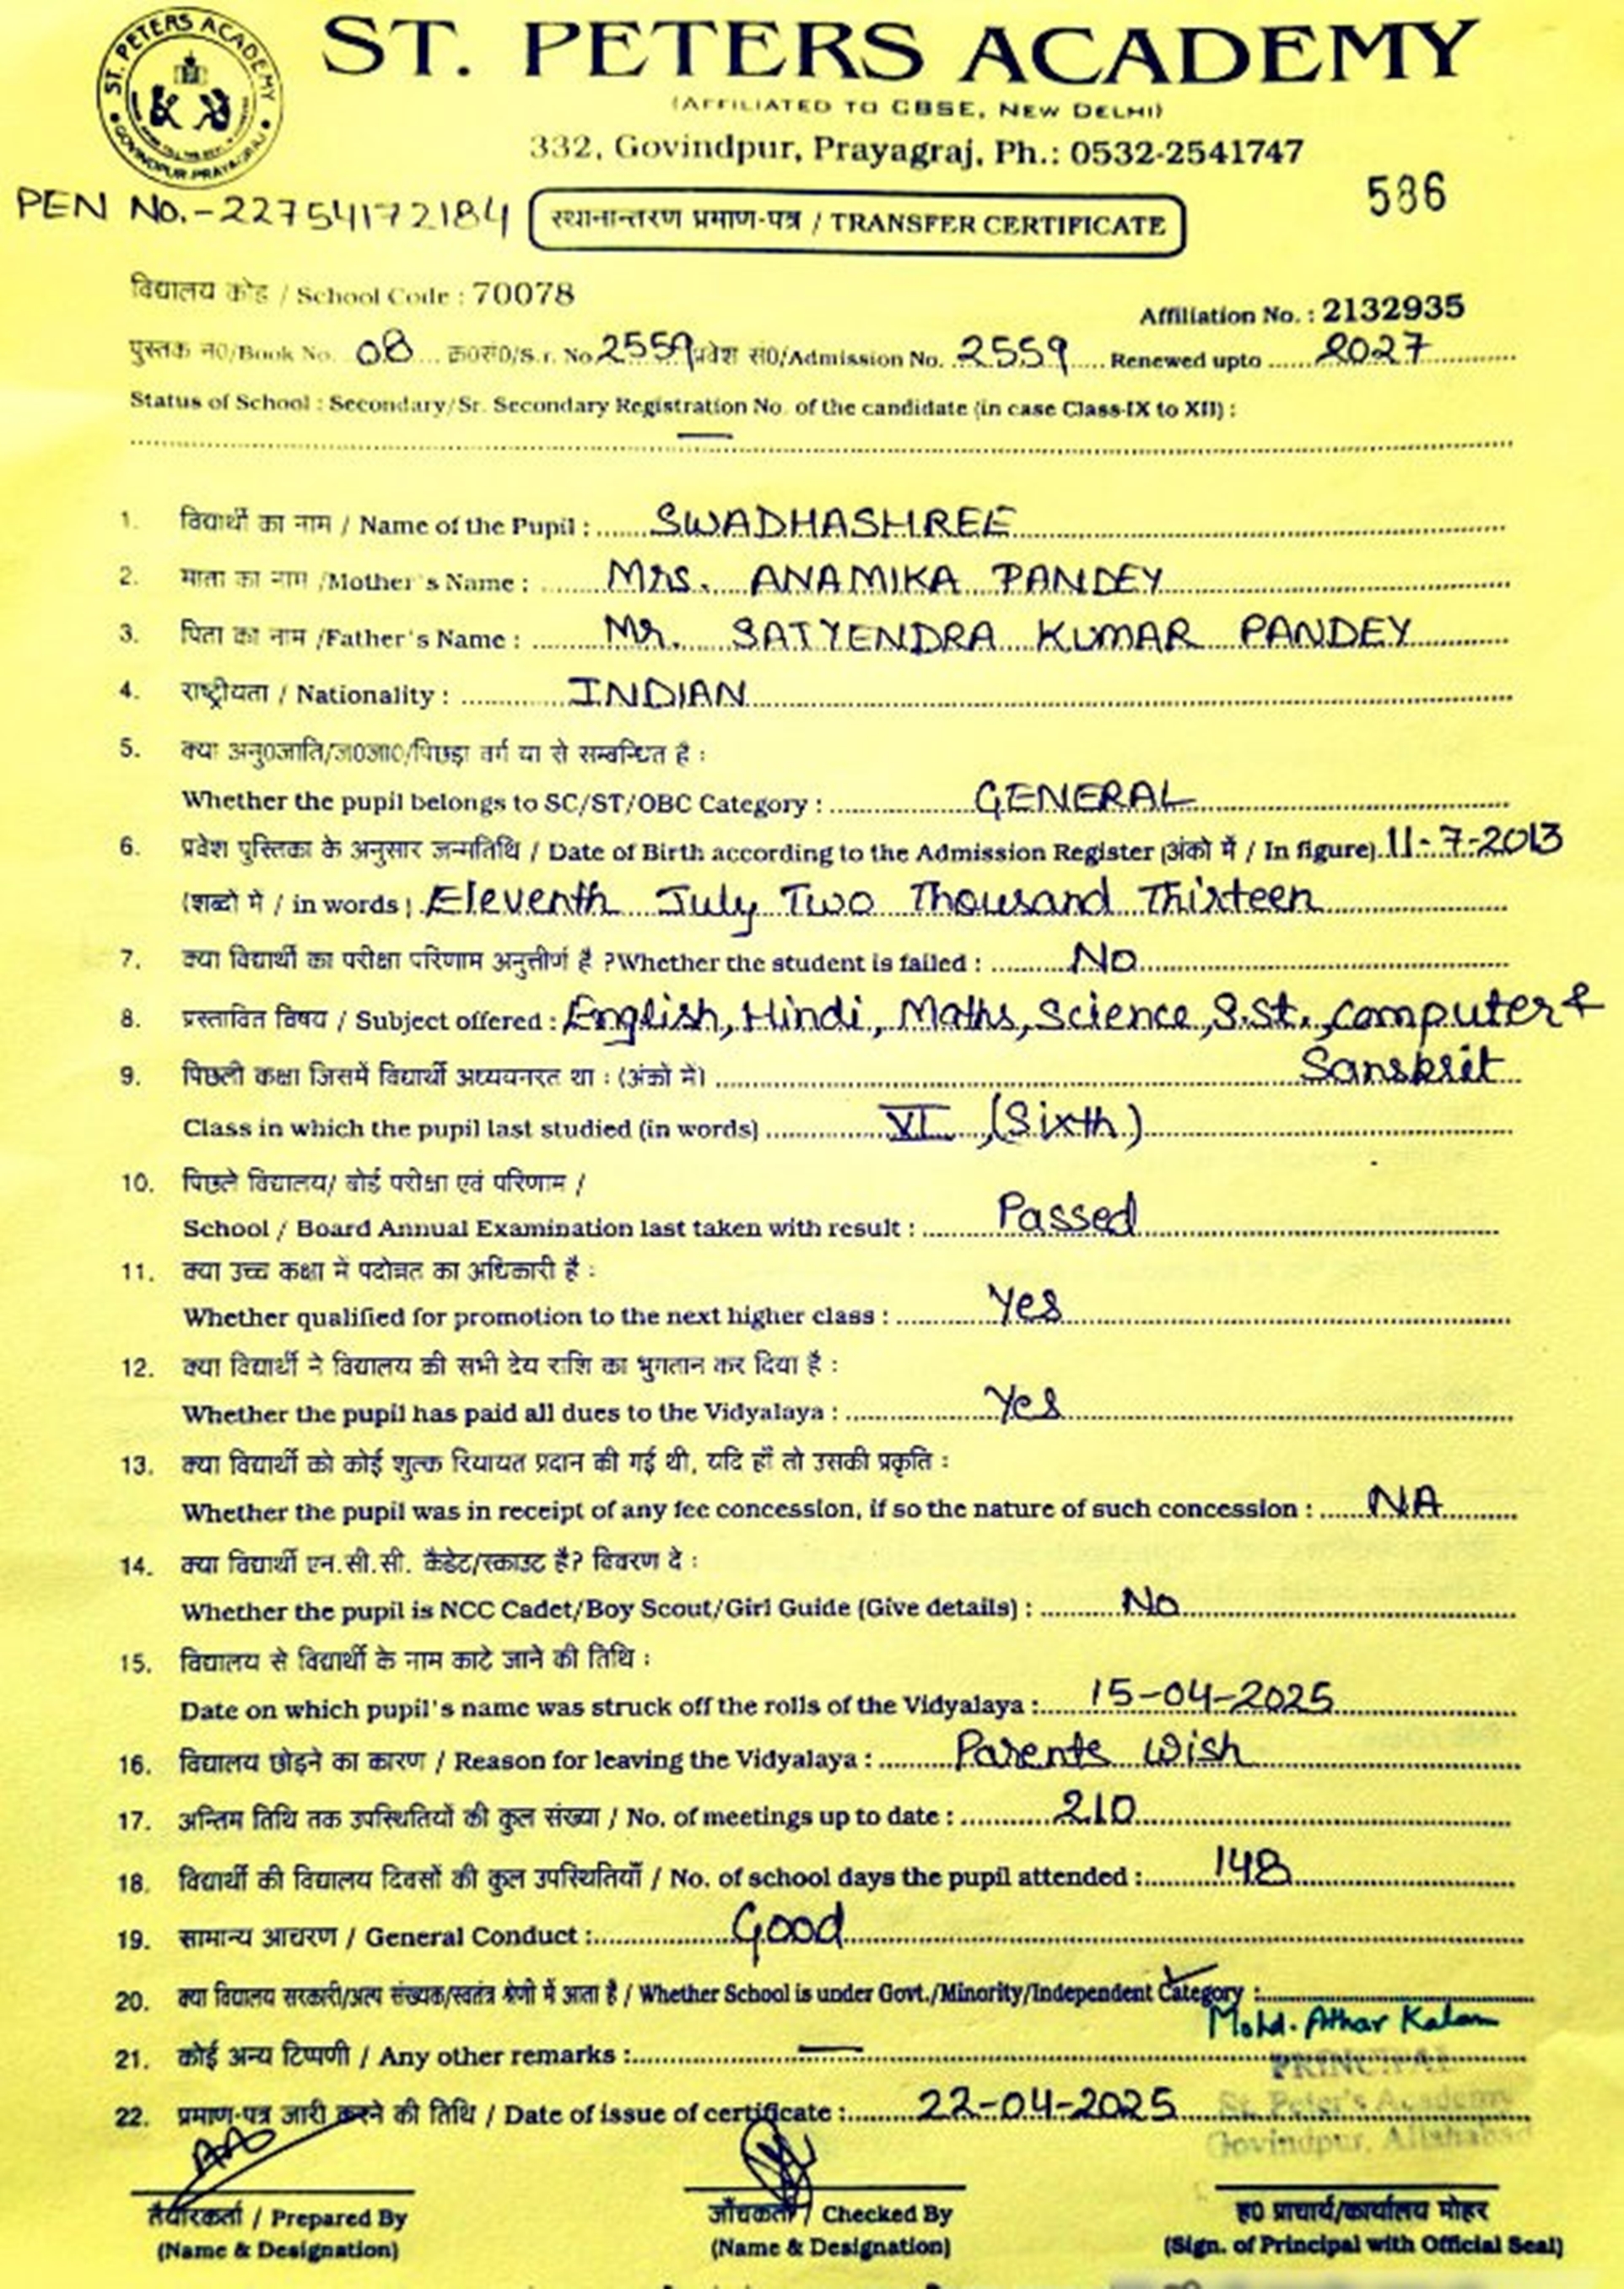 ST. PETERS ACADEMY
ST. PETERS ACADEMY
GOVINDPUR PRAYAGRAJ
(AFFILIATED TO CBSE, NEW DELHI)
332, Govindpur, Prayagraj, Ph.: 0532-2541747
586
PEN No.-22754172184
स्थानान्तरण प्रमाण-पत्र / TRANSFER CERTIFICATE
विद्यालय कोड / School Code : 70078
Affiliation No. : 2132935
पुस्तक न0/Book No. 08 क्र0सं0/S.r. No. 2559 प्रवेश सं0/Admission No. 2559 Renewed upto 2027
Status of School : Secondary/Sr. Secondary Registration No. of the candidate (in case Class-IX to XII) :
1. विद्यार्थी का नाम / Name of the Pupil : SWADHASHREE
2. माता का नाम /Mother's Name : Mrs. ANAMIKA PANDEY
3. पिता का नाम /Father's Name : Mr. SATYENDRA KUMAR PANDEY
4. राष्ट्रीयता / Nationality : INDIAN
5. क्या अनु0जाति/ज0जा0/पिछड़ा वर्ग या से सम्बन्धित है :
Whether the pupil belongs to SC/ST/OBC Category : GENERAL
6. प्रवेश पुस्तिका के अनुसार जन्मतिथि / Date of Birth according to the Admission Register (अंको में / In figure) 11-7-2013
(शब्दो मे / in words) Eleventh July Two Thousand Thirteen
7. क्या विद्यार्थी का परीक्षा परिणाम अनुत्तीर्ण है ?Whether the student is failed : No
8. प्रस्तावित विषय / Subject offered : English, Hindi, Maths, Science, S.St., Computer &
Sanskrit
9. पिछली कक्षा जिसमें विद्यार्थी अध्ययनरत था : (अंको में)
Class in which the pupil last studied (in words) VI (Sixth)
10. पिछले विद्यालय/ बोर्ड परीक्षा एवं परिणाम /
School / Board Annual Examination last taken with result : Passed
11. क्या उच्च कक्षा में पदोन्नत का अधिकारी है :
Whether qualified for promotion to the next higher class : Yes
12. क्या विद्यार्थी ने विद्यालय की सभी देय राशि का भुगतान कर दिया है :
Whether the pupil has paid all dues to the Vidyalaya : Yes
13. क्या विद्यार्थी को कोई शुल्क रियायत प्रदान की गई थी, यदि हाँ तो उसकी प्रकृति :
Whether the pupil was in receipt of any fee concession, if so the nature of such concession : NA
14. क्या विद्यार्थी एन.सी.सी. कैडेट/स्काउट है? विवरण दे :
Whether the pupil is NCC Cadet/Boy Scout/Girl Guide (Give details) : No
15. विद्यालय से विद्यार्थी के नाम काटे जाने की तिथि :
Date on which pupil's name was struck off the rolls of the Vidyalaya : 15-04-2025
16. विद्यालय छोड़ने का कारण / Reason for leaving the Vidyalaya : Parents Wish
17. अन्तिम तिथि तक उपस्थितियों की कुल संख्या / No. of meetings up to date : 210
18. विद्यार्थी की विद्यालय दिवसों की कुल उपस्थितियाँ / No. of school days the pupil attended : 148
19. सामान्य आचरण / General Conduct : Good
20. क्या विद्यालय सरकारी/अल्प संख्यक/स्वतंत्र श्रेणी में आता है / Whether School is under Govt./Minority/Independent Category :
Mohd. Athar Kalam
21. कोई अन्य टिप्पणी / Any other remarks :
PRINCIPAL
22. प्रमाण-पत्र जारी करने की तिथि / Date of issue of certificate : 22-04-2025
St. Peter's Academy
Govindpur, Allahabad
तैयारकर्ता / Prepared By
(Name & Designation)
जाँचकर्ता / Checked By
(Name & Designation)
ह0 प्राचार्य/कार्यालय मोहर
(Sign. of Principal with Official Seal)